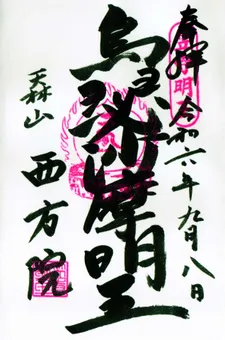 奉拝 令和六年九月八日
烏枢沙摩明王
天林山
西方院